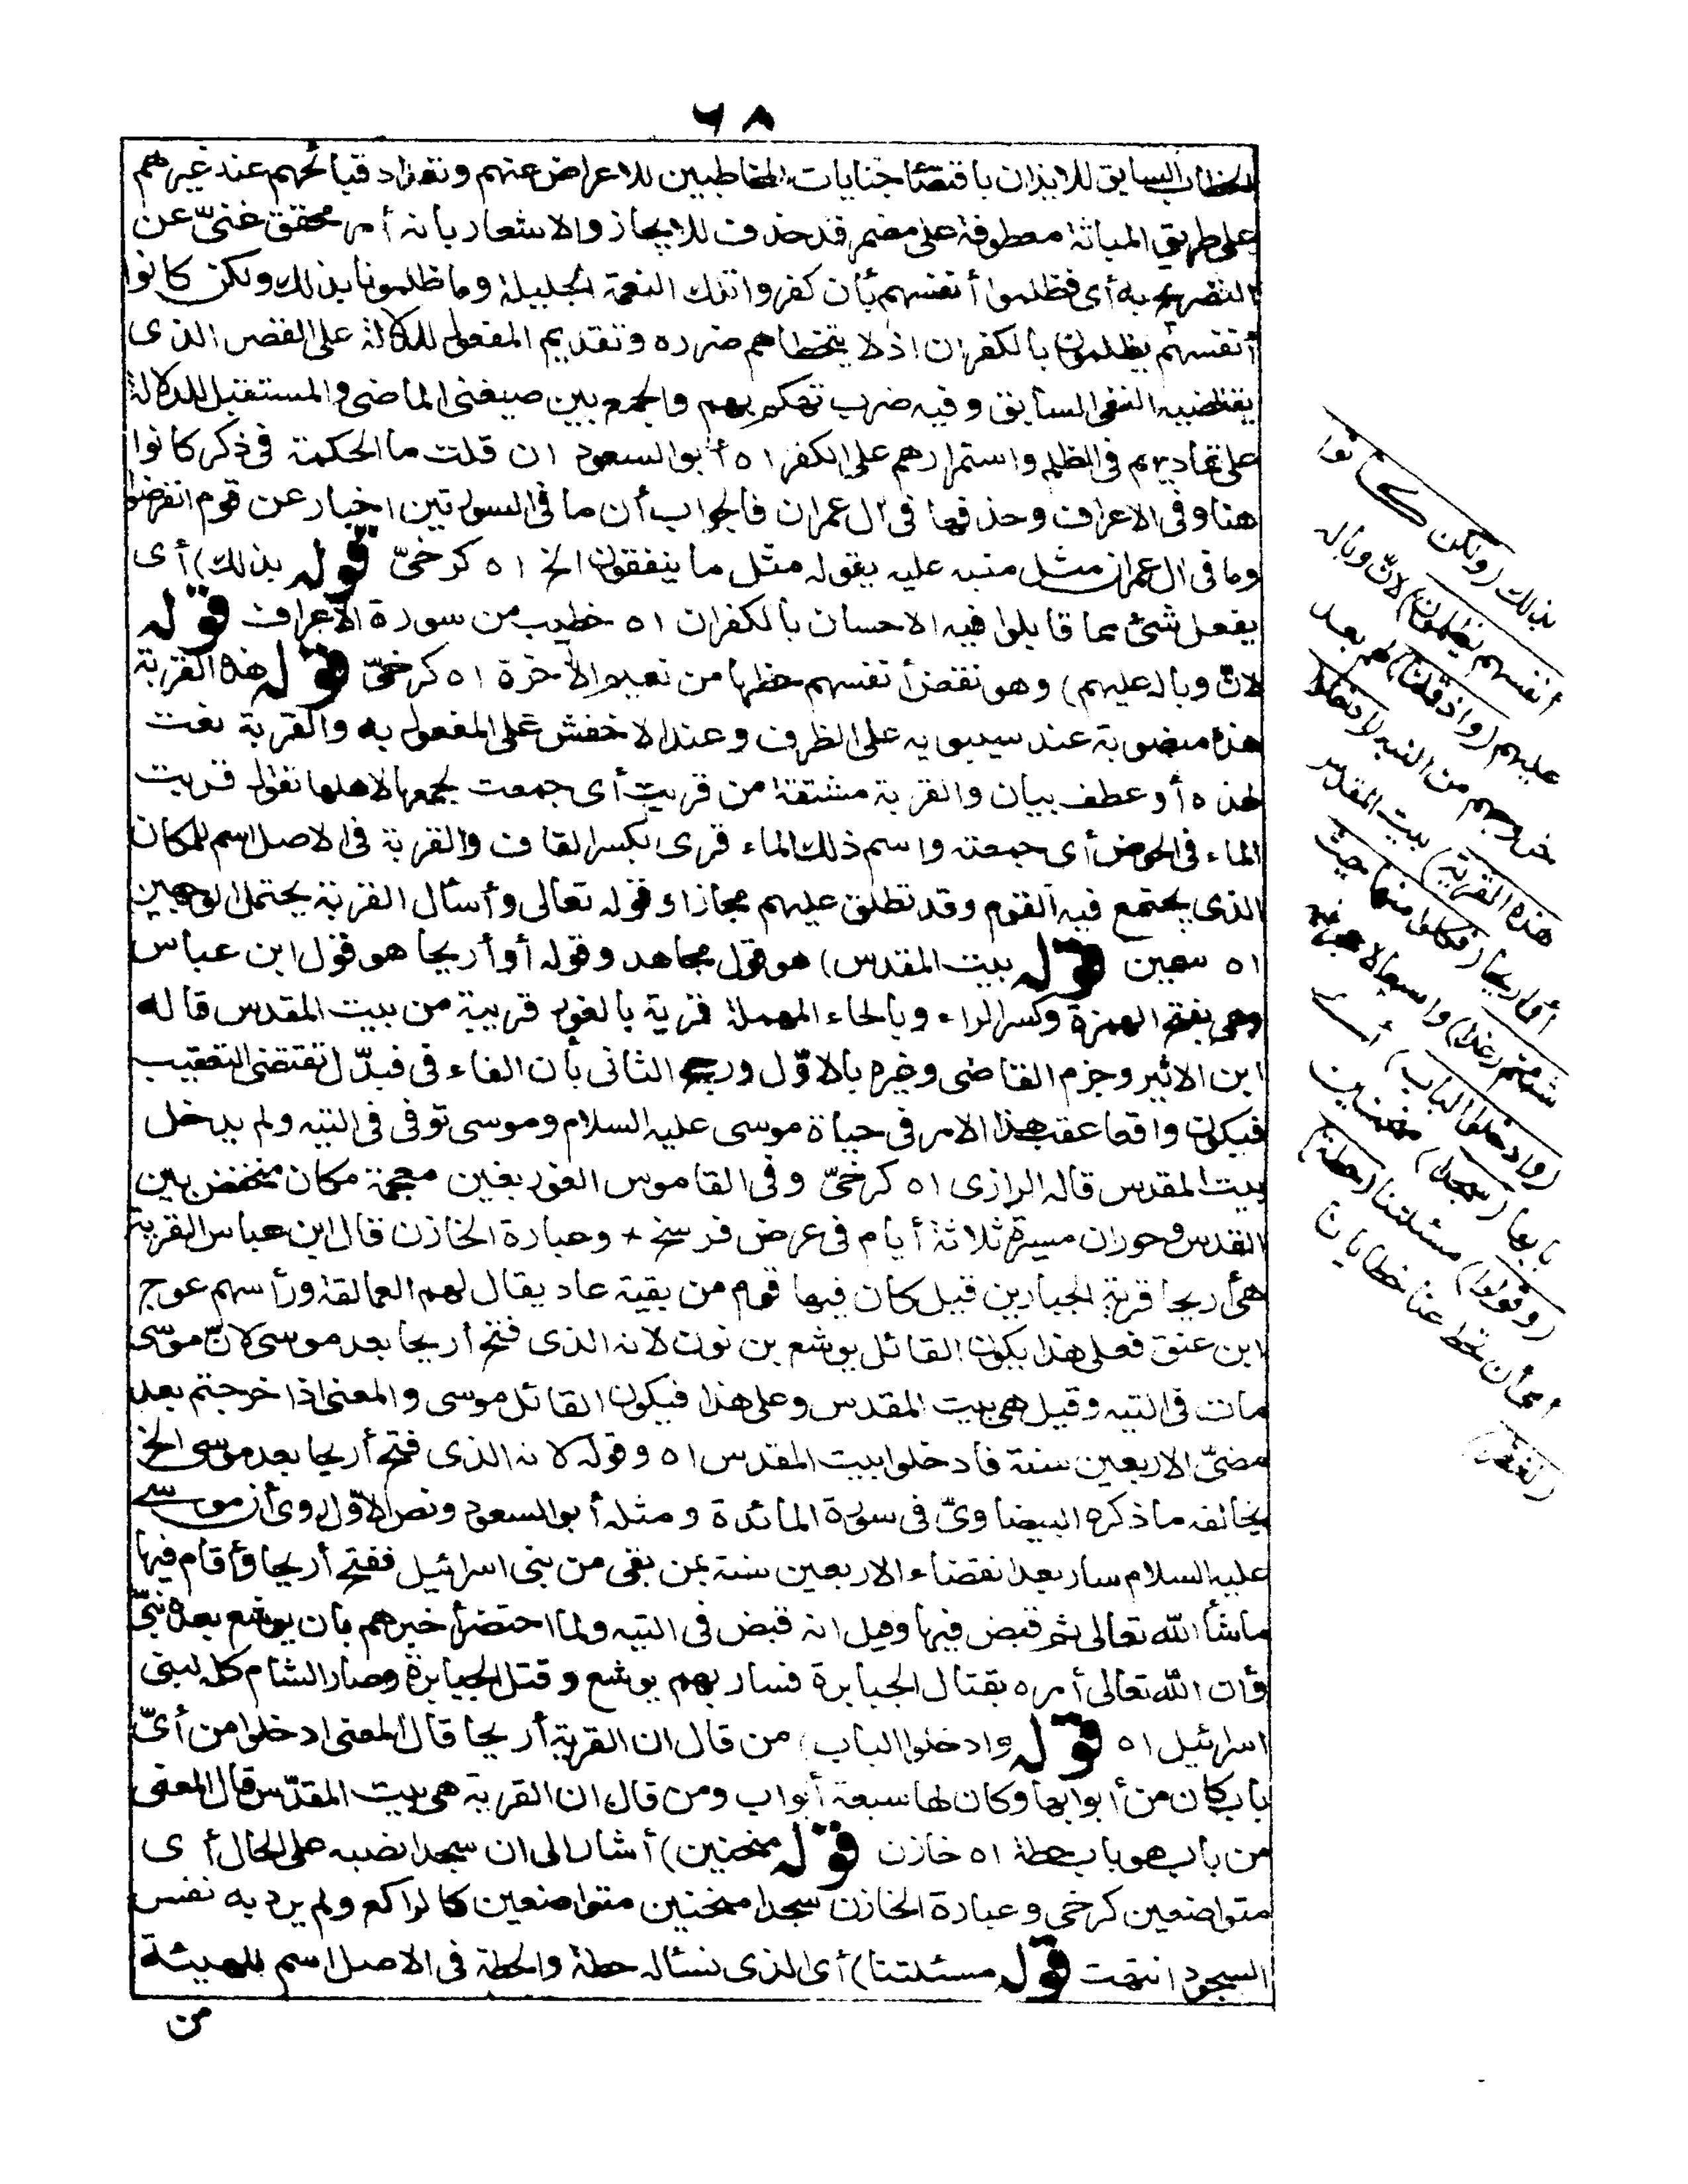 ٦٨
الخطاب السابق للايذان باقتضا جنايات المخاطبين للاعراض عنهم وتعداد قبائحهم عند غيرهم
على طريق المباثة معطوفة على مضمر قد حذف للايجاز والاشعار بانه أمر محقق غنىّ عن
التصريح به أى فظلموا أنفسهم بأن كفروا تلك النعمة الجليلة وما ظلمونا بذلك ولكن كانوا
أنفسهم يظلمون بالكفران اذ لا يتخطاهم ضرره وتقديم المفعول للدلالة على القصر الذى
يقتضيه النفى السابق وفيه ضرب تهكم بهم والجمع بين صيغتى الماضى والمستقبل للدلالة
على تماديهم فى الظلم واستمرارهم على الكفر اه أبو السعود ان قلت ما الحكمة فى ذكر كانوا
هنا وفى الاعراف وحذفها فى ال عمران فالجواب أن ما فى السورتين اخبار عن قوم انقرضوا
وما فى ال عمران مثل منبه عليه بقوله مثل ما ينفقون الخ اه كرخىّ قوله بذلك) أى
بفعل شئ مما قابلوا فيه الاحسان بالكفران اه خطيب من سورة الأعراف قوله
لانّ وباله عليهم) وهو نقص أنفسهم حظها من نعيم الآخرة اه كرخىّ قوله هذه القرية
هذه منصوبة عند سيبويه على الظرف وعند الاخفش على المفعول به والقرية نعت
لهذه أو عطف بيان والقرية مشتقة من قريت أى جمعت لجمعها لاهلها تقول قريت
الماء فى الحوض أى جمعته واسم ذلك الماء قرى بكسر القاف والقرية فى الاصل اسم للمكان
الذى يجتمع فيه القوم وقد تطلق عليهم مجازا وقوله تعالى وأسأل القرية يحتمل الوجهين
اه سمين قوله بيت المقدس) هو قول مجاهد وقوله أو أريحا هو قول ابن عباس
وهى بفتح الهمزة وكسر الراء وبالحاء المهملة قرية بالغور قريبة من بيت المقدس قاله
ابن الاثير وجزم القاضى وغيره بالاوّل ورجح الثانى بأن الفاء فى فبدّل تقتضى التعقيب
فيكون واقعا عقب هذا الامر فى حياة موسى عليه السلام وموسى توفى فى التيه ولم يدخل
بيت المقدس قاله الرازى اه كرخىّ وفى القاموس الغور بغين معجمة مكان منخفض بين
القدس وحوران مسيرة ثلاثة أيام فى عرض فرسخ + وعبارة الخازن قال ابن عباس القرية
هى أريحا قرية الجبارين قيل كان فيها قوم من بقية عاد يقال لهم العمالقة ورأسهم عوج
ابن عنق فعلى هذا يكون القائل يوشع بن نون لانه الذى فتح أريحا بعد موسى لانّ موسى
مات فى التيه وقيل هى بيت المقدس وعلى هذا فيكون القائل موسى والمعنى اذا خرجتم بعد
مضىّ الاربعين سنة فادخلوا بيت المقدس اه وقوله لانه الذى فتح أريحا بعد موسى الخ
يخالفه ما ذكره البيضاوىّ فى سورة المائدة ومثله أبو السعود ونص الاوّل روى أن موسى
عليه السلام سار بعد انقضاء الاربعين سنة بمن بقى من بنى اسرائيل ففتح أريحا وأقام فيها
ماشأ الله تعالى ثم قبض فيها وقيل انه قبض فى التيه ولما احتضر أخبرهم بان يوشع بعده نبىّ
وأن الله تعالى أمره بقتال الجبابرة فسار بهم يوشع وقتل الجبابرة وصار الشام كله لبنى
اسرائيل اه قوله وادخلوا الباب) من قال ان القرية أريحا قال المعنى ادخلوا من أىّ
باب كان من أبوابها وكان لها سبعة أبواب ومن قال ان القرية هى بيت المقدّس قال المعنى
من باب هو باب حطة اه خازن قوله منحنين) أشار الى ان سجدا نصبه على الحال أى
متواضعين كرخى وعبارة الخازن سجدا منحنين متواضعين كالراكع ولم يرد به نفس
السجود انتهت قوله مسئلتنا) أى الذى نسئاله حطة والحطة فى الاصل اسم للهيئة
من
بذلك (ولكن كانوا
أنفسهم يظلمون) لانّ وباله
عليهم (واذ قلنا) لهم بعد
خروجهم من التيه (ادخلوا
هذه القرية) بيت المقدس
أو أريحا (فكلوا منها حيث
شئتم رغدا) واسعا لا حجر فيه
(وادخلوا الباب) أى
بابها (سجدا) منحنين
(وقولوا) مسئلتنا (حطة)
أى أن تحط عنا خطايانا
(نغفر)